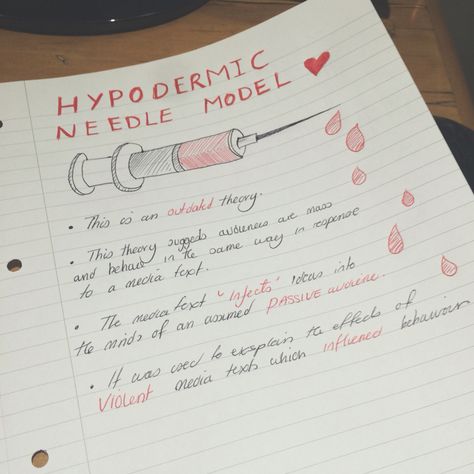 HYPODERMIC
NEEDLE MODEL
• This is an outdated theory.
• This theory suggests audiences are mass
and behave in the same way in response
to a media text.
• The media text "injects" ideas into
the minds of an assumed PASSIVE audience.
• It was used to explain the effects of
VIOLENT media texts which influenced behaviour